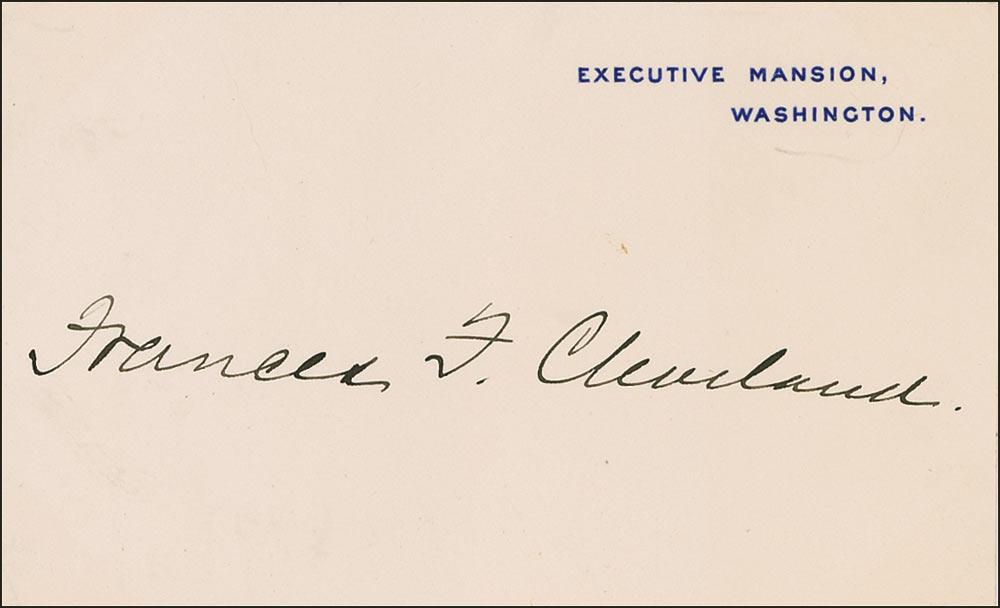 EXECUTIVE MANSION,
WASHINGTON.
Frances F. Cleveland.